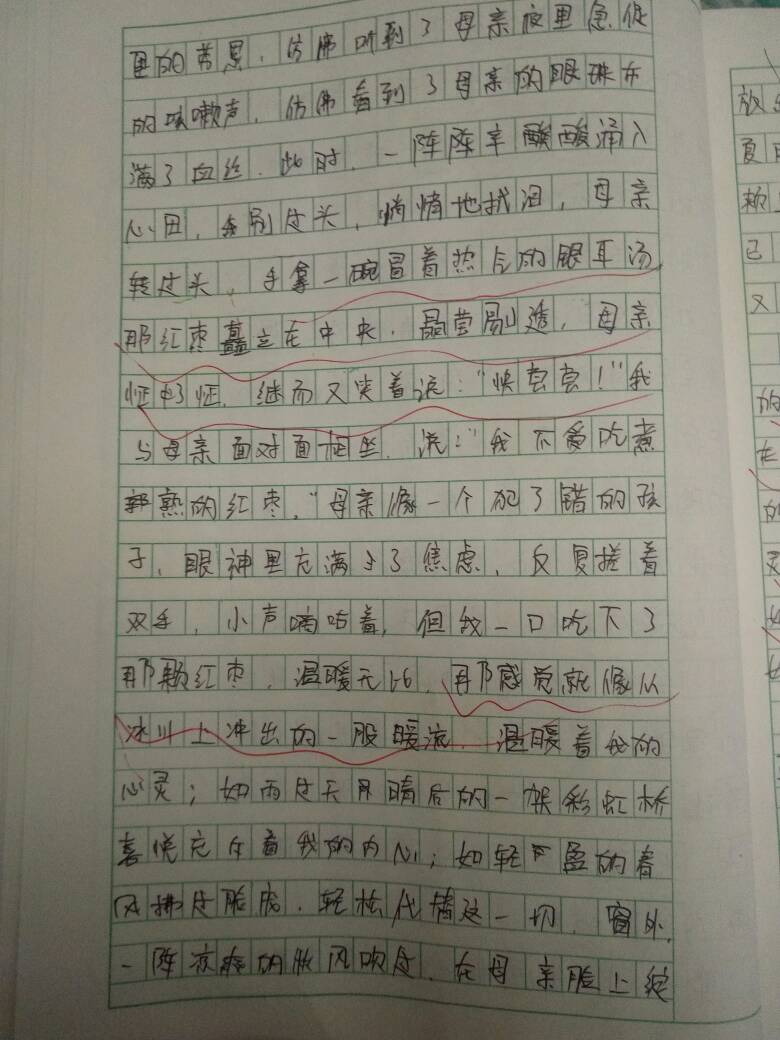 里的苦累，仿佛听到了母亲夜里急促
的咳嗽声，仿佛看到了母亲的眼珠布
满了血丝，此时，一阵阵辛酸涌入
心田，别过头，悄悄地拭泪，母亲
转过头，手拿一碗冒着热气的银耳汤
那红枣矗立在中央，晶莹剔透，母亲
怔了怔，继而又笑着说："快尝尝！"我
与母亲面对面相坐，说："我不爱吃煮
熟的红枣，"母亲像一个犯了错的孩
子，眼神里充满了焦虑，反复搓着
双手，小声嘀咕着，但我一口吃下了
那颗红枣，温暖无比，那感觉就像从
冰川上冲出的一股暖流，温暖着我的
心灵；如雨过天晴后的一架彩虹桥
喜悦充斥着我的内心；如轻盈的春
风拂过脸庞，轻松代替这一切，窗外，
一阵凉爽的秋风吹过，在母亲脸上绽
放
复
软
己
又
的
在
的